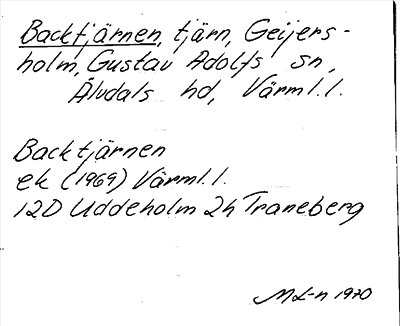 Backtjärnen, tjärn, Geijers-
holm, Gustav Adolfs sn,
Älvdals hd, Värml. l.
Backtjärnen
ek (1969) Värml. l.
12D Uddeholm 2h Traneberg
ML-n 1970